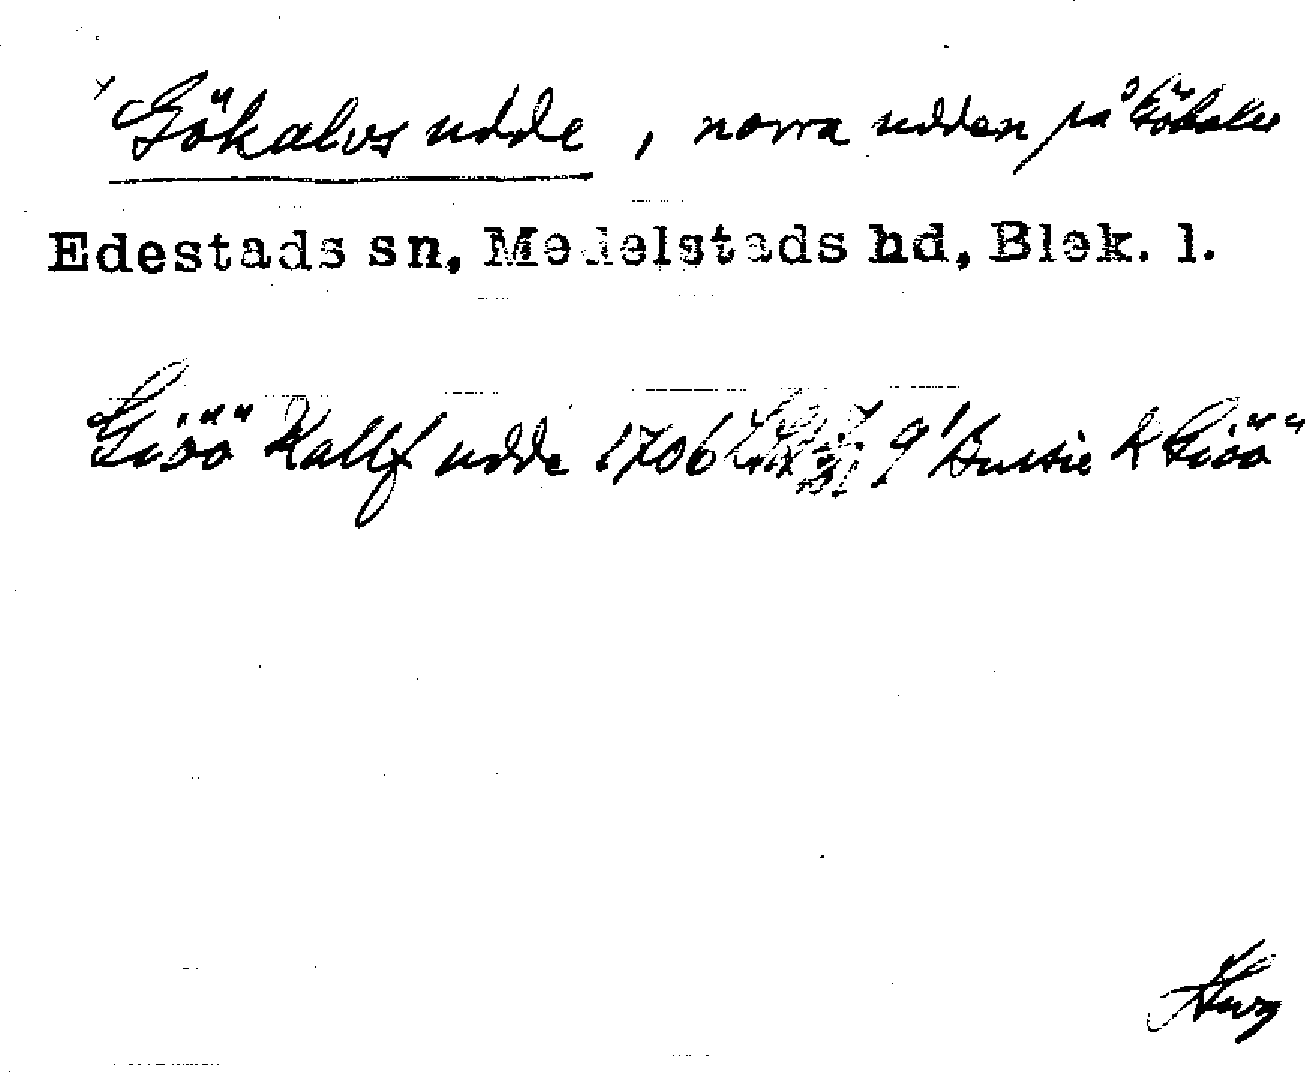 Gökalvs udde, norra udden på Gökalv
Edestads sn, Medelstads hd, Blek. l.
Giöö Kallf udde 1706 Giöö